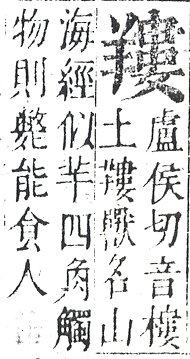 䍣
盧侯切音樓
土䍣獸名山
海經似羊四角觸
物則斃能食人